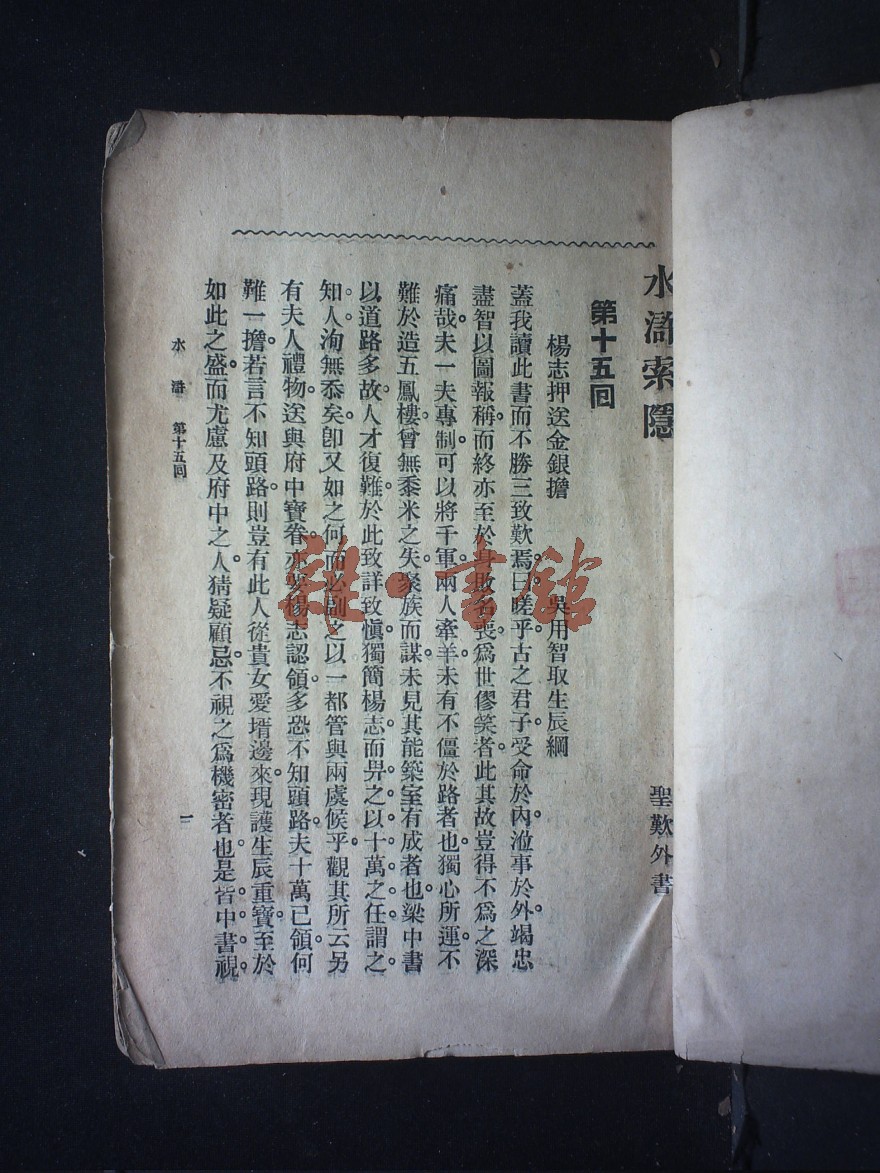 水滸索隱
聖歎外書
第十五回
楊志押送金銀擔 吳用智取生辰綱
蓋我讀此書而不勝三致歎焉曰嗟乎古之君子受命於內涖事於外竭忠
盡智以圖報稱而終亦至於身敗名喪爲世僇笑者此其故豈得不爲之深
痛哉夫一夫專制可以將千軍兩人牽羊未有不僵於路者也獨心所運不
難於造五鳳樓曾無黍米之失聚族而謀未見其能築室有成者也梁中書
以道路多故人才復難於此致詳致愼獨簡楊志而畀之以十萬之任謂之
知人洵無忝矣卽又如之何而必副之以一都管與兩虞候乎觀其所云另
有夫人禮物送與府中寶眷亦要楊志認領多恐不知頭路夫十萬已領何
難一擔若言不知頭路則豈有此人從貴女愛壻邊來現護生辰重寶至於
如此之盛而尤慮及府中之人猜疑顧忌不視之爲機密者也是皆中書視
水滸 第十五回
一
雜·書館